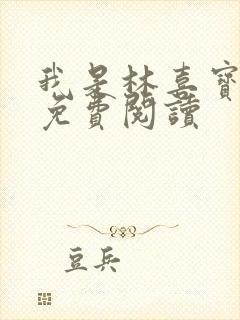 我是林喜寶
免費閱讀
豆兵